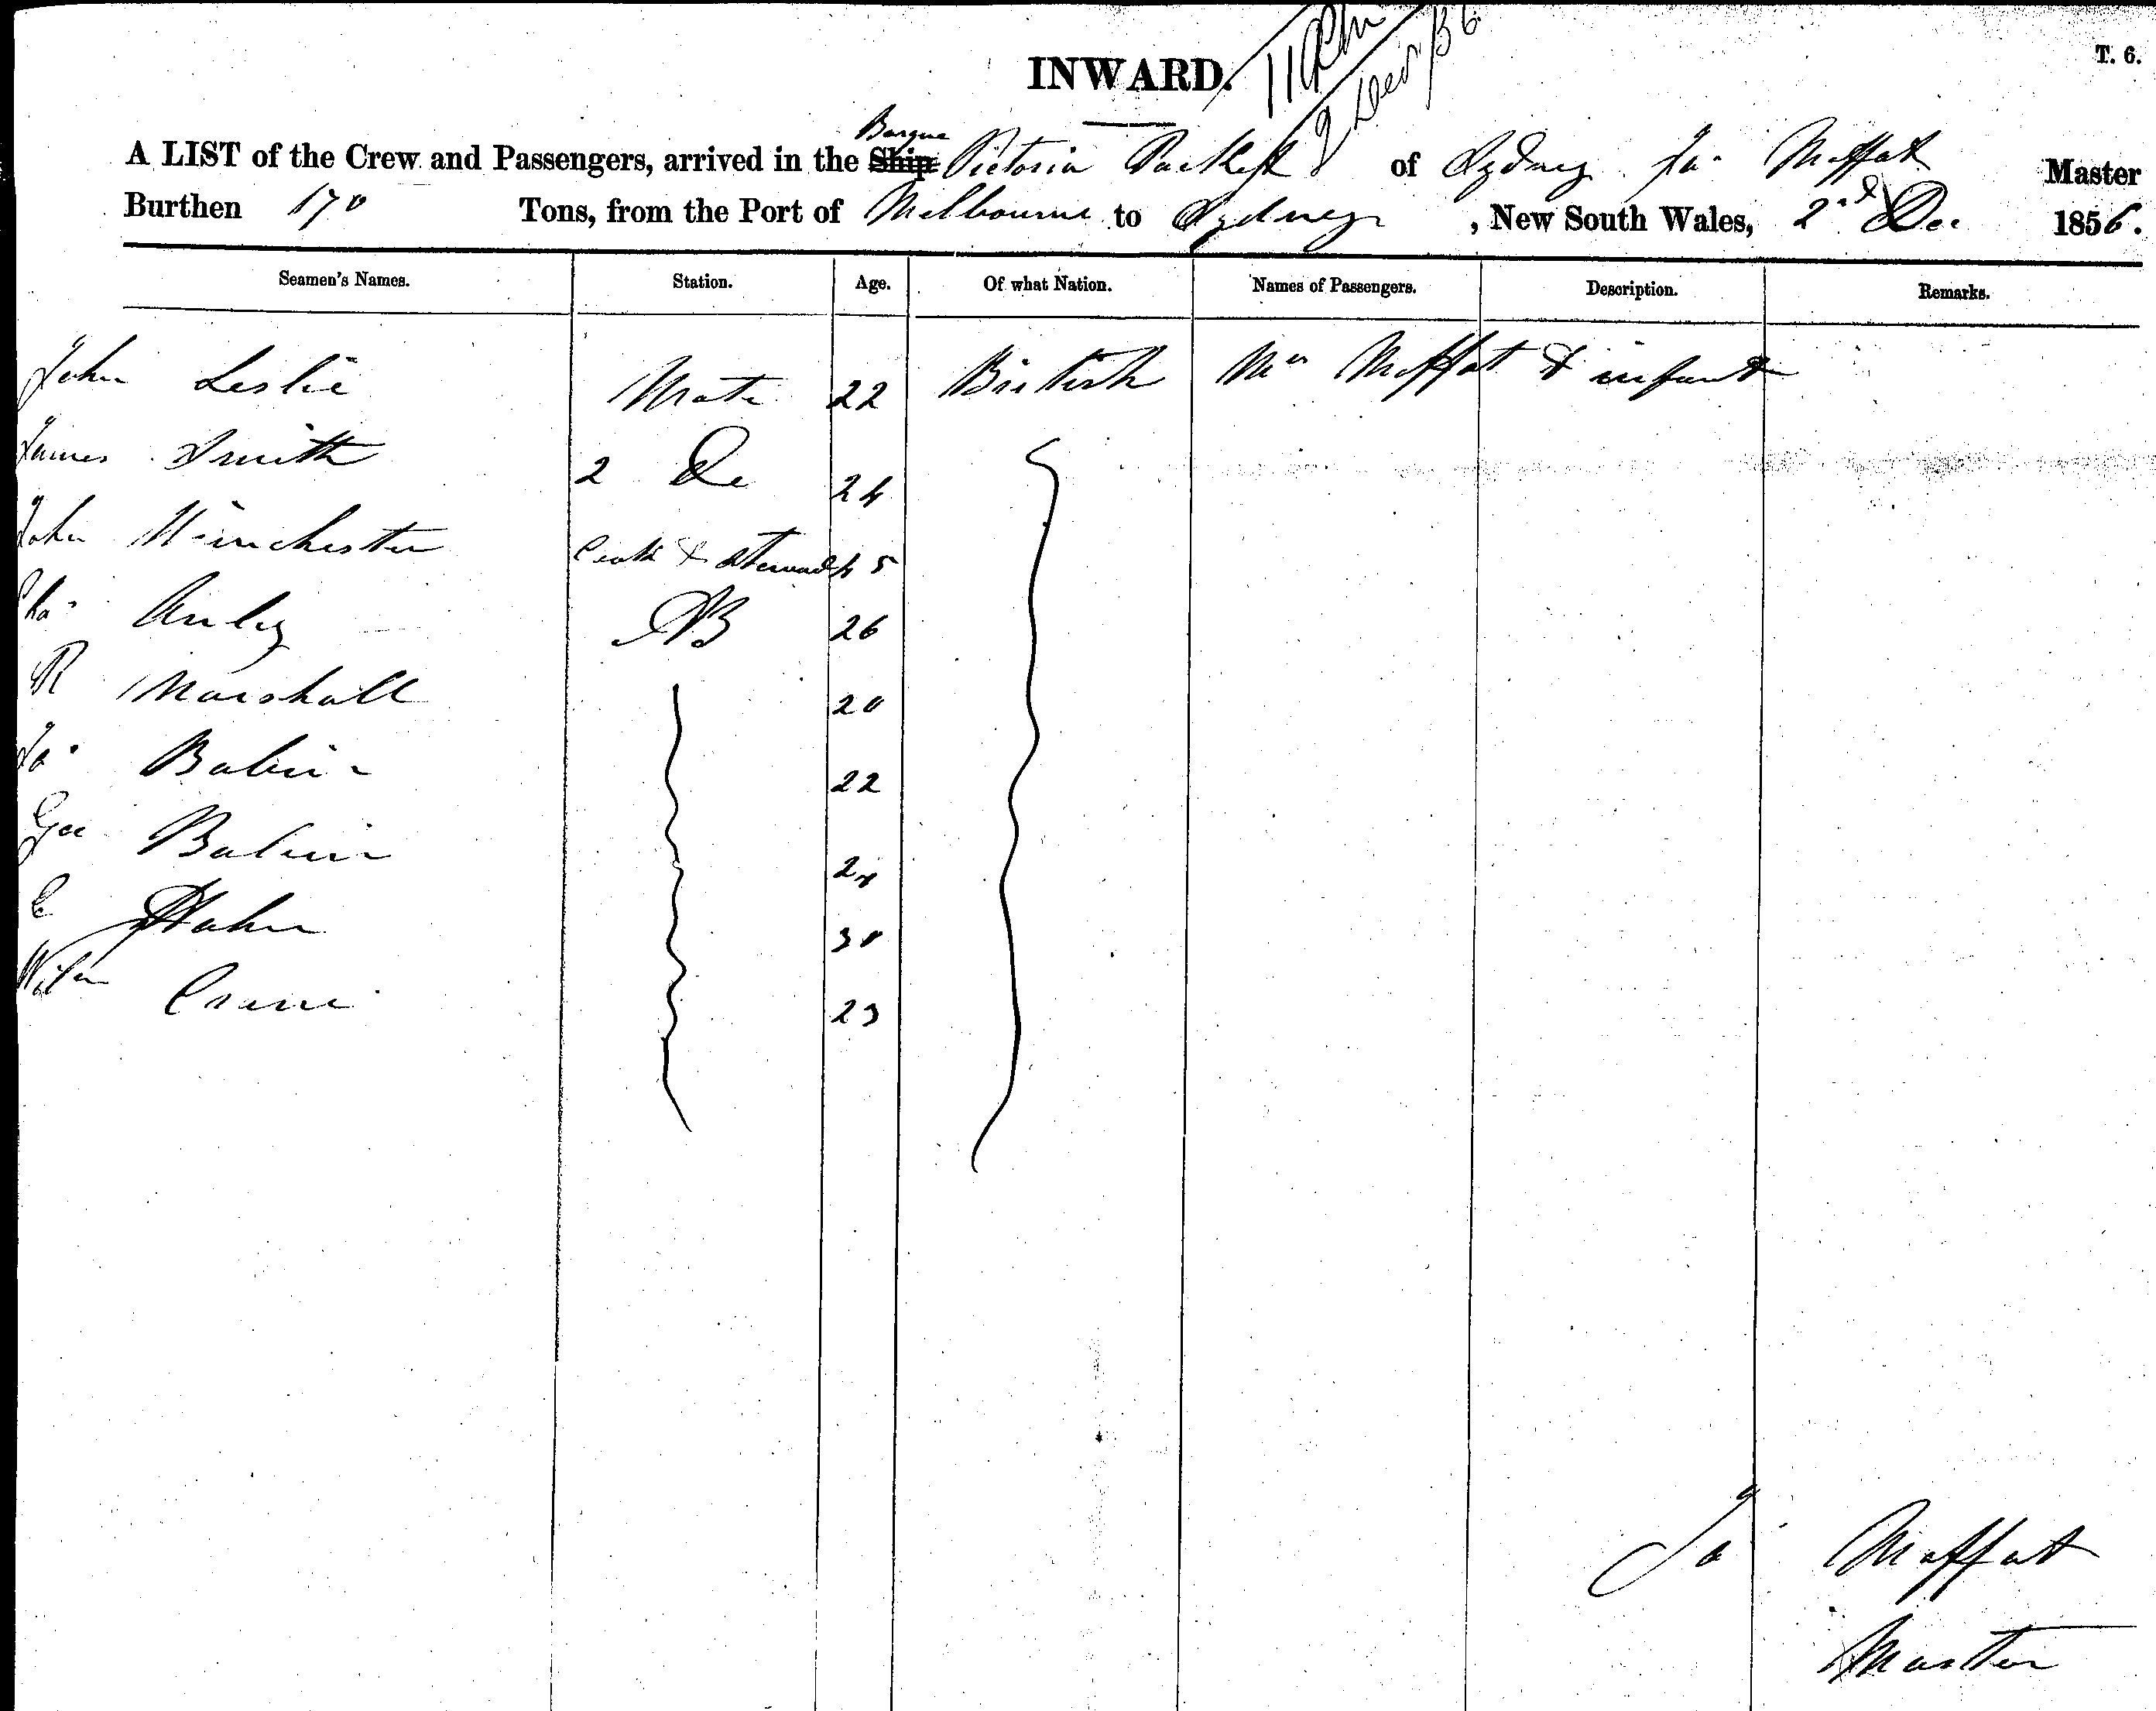 INWARD.
T. 6.
2 Decr 56
Barque
A LIST of the Crew and Passengers, arrived in the Ship Victoria Packet of Sydney Jas. Moffat Master
Burthen 170 Tons, from the Port of Melbourne to Sydney, New South Wales, 2nd Dec 1856.
Seamen's Names. Station. Age. Of what Nation. Names of Passengers. Description. Remarks.
John Leslie Mate 22 British Mrs Moffat & infant
James Smith 2 Do 24
John Winchester Cook & Steward 45
Chas AB 26
R Marshall 20
Jas 22
Geo 24
C Hahn 30
Wilm 23
Jas Moffat
Master